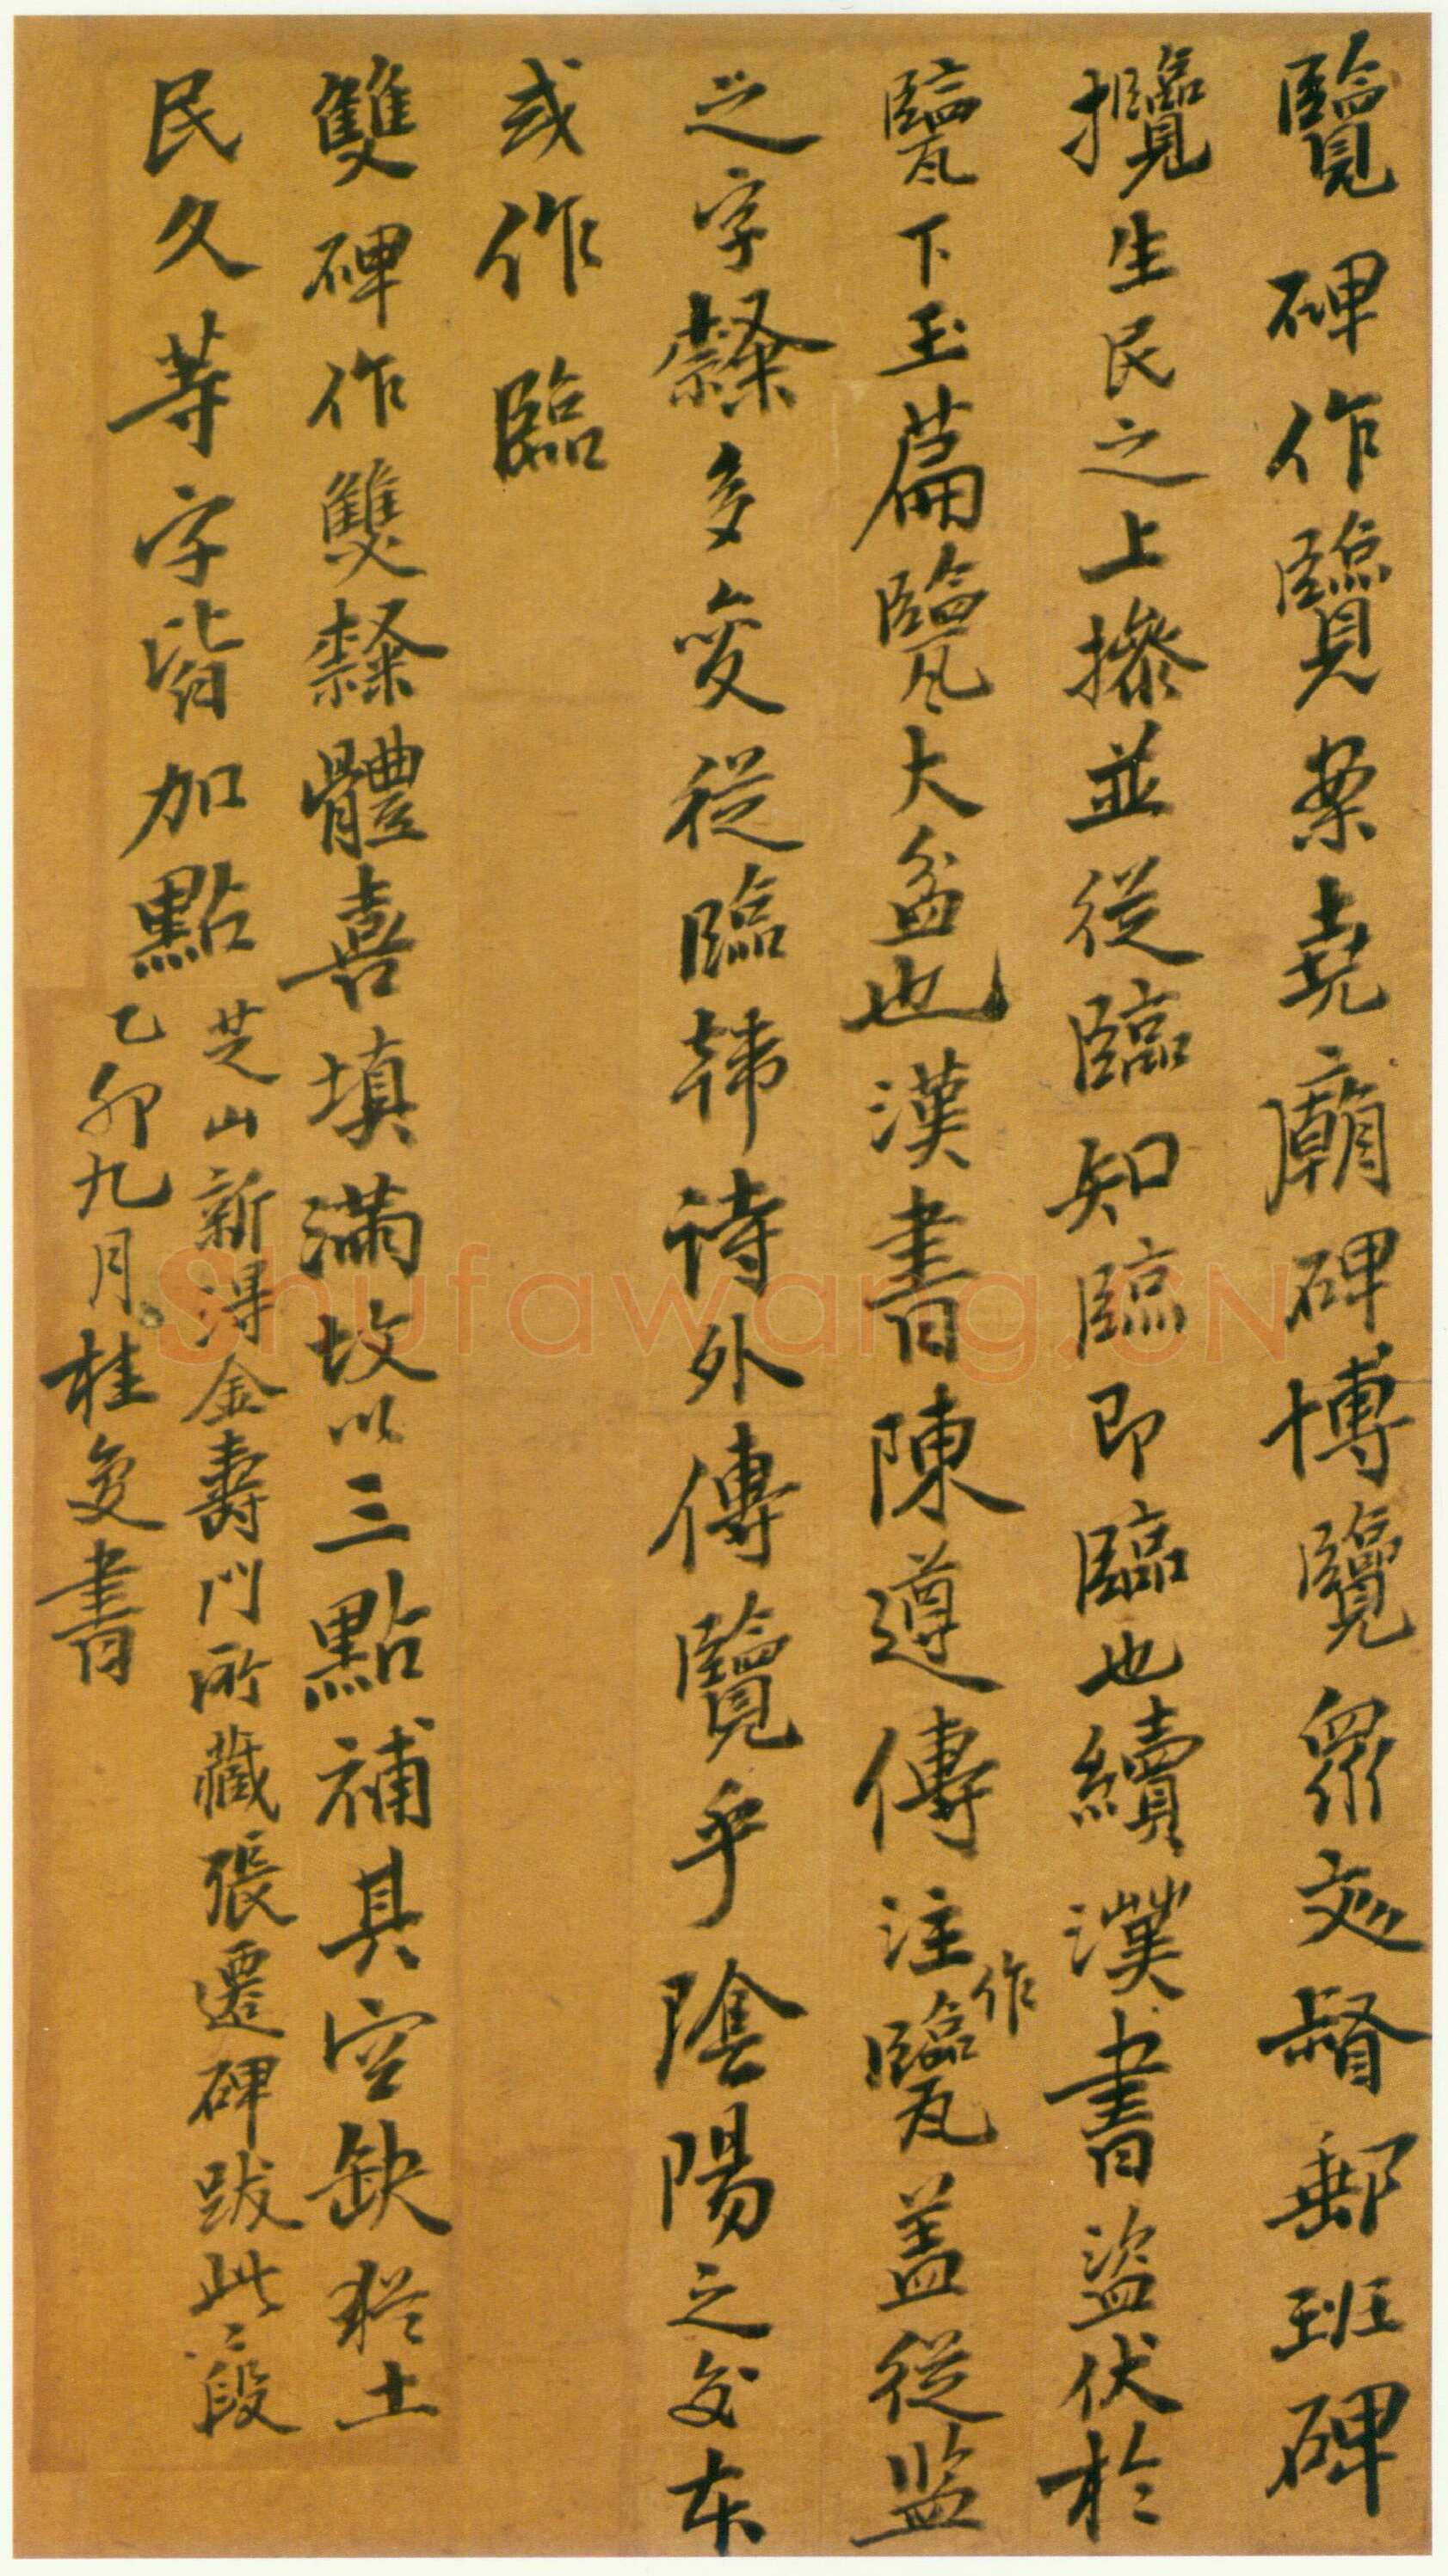 覽碑作覽案堯廟碑博覽眾文督郵班碑
攬生民之上摻並從臨知臨即臨也續漢書盜伏於
甖下玉篇甖大盆也漢書陳遵傳注作甖蓋從監
之字隸多變從臨韓詩外傳覽乎陰陽之交本
或作臨
雙碑作雙隸體喜填滿故以三點補其空缺猶土
民久等字皆加點
芝山新得金壽門所藏張遷碑跋此二段
乙卯九月桂复書
Shufawang.CN